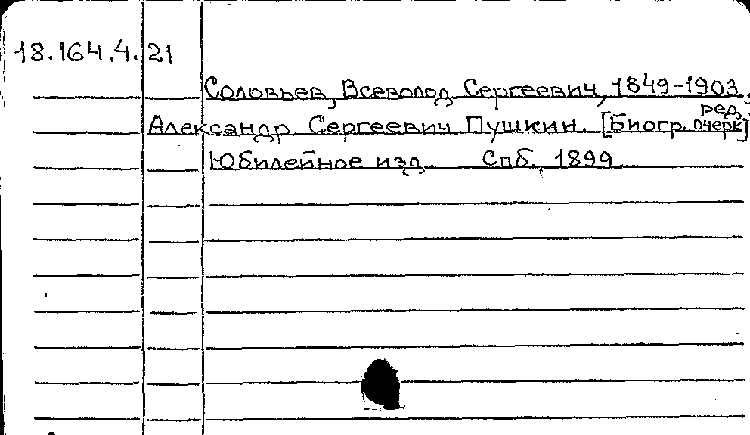 18.164.4.21
Соловьев, Всеволод Сергеевич, 1849-1903,
ред.
Александр Сергеевич Пушкин. [Биогр. очерк]
Юбилейное изд. Спб., 1899